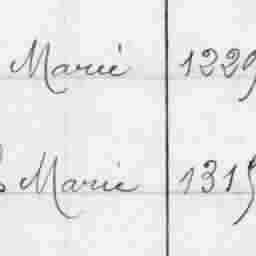 Marié 1229
Marié 1315